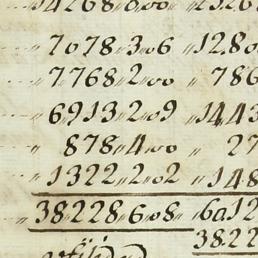 14268"8"00 "
" 7078"3"06 "12,80
" 7,768"2"00 " 786
" 6,913"2"09 "14,43
" 878"4"00 " 27
" 1322"2"02 "148
"38228"6"08" 6a12
3822